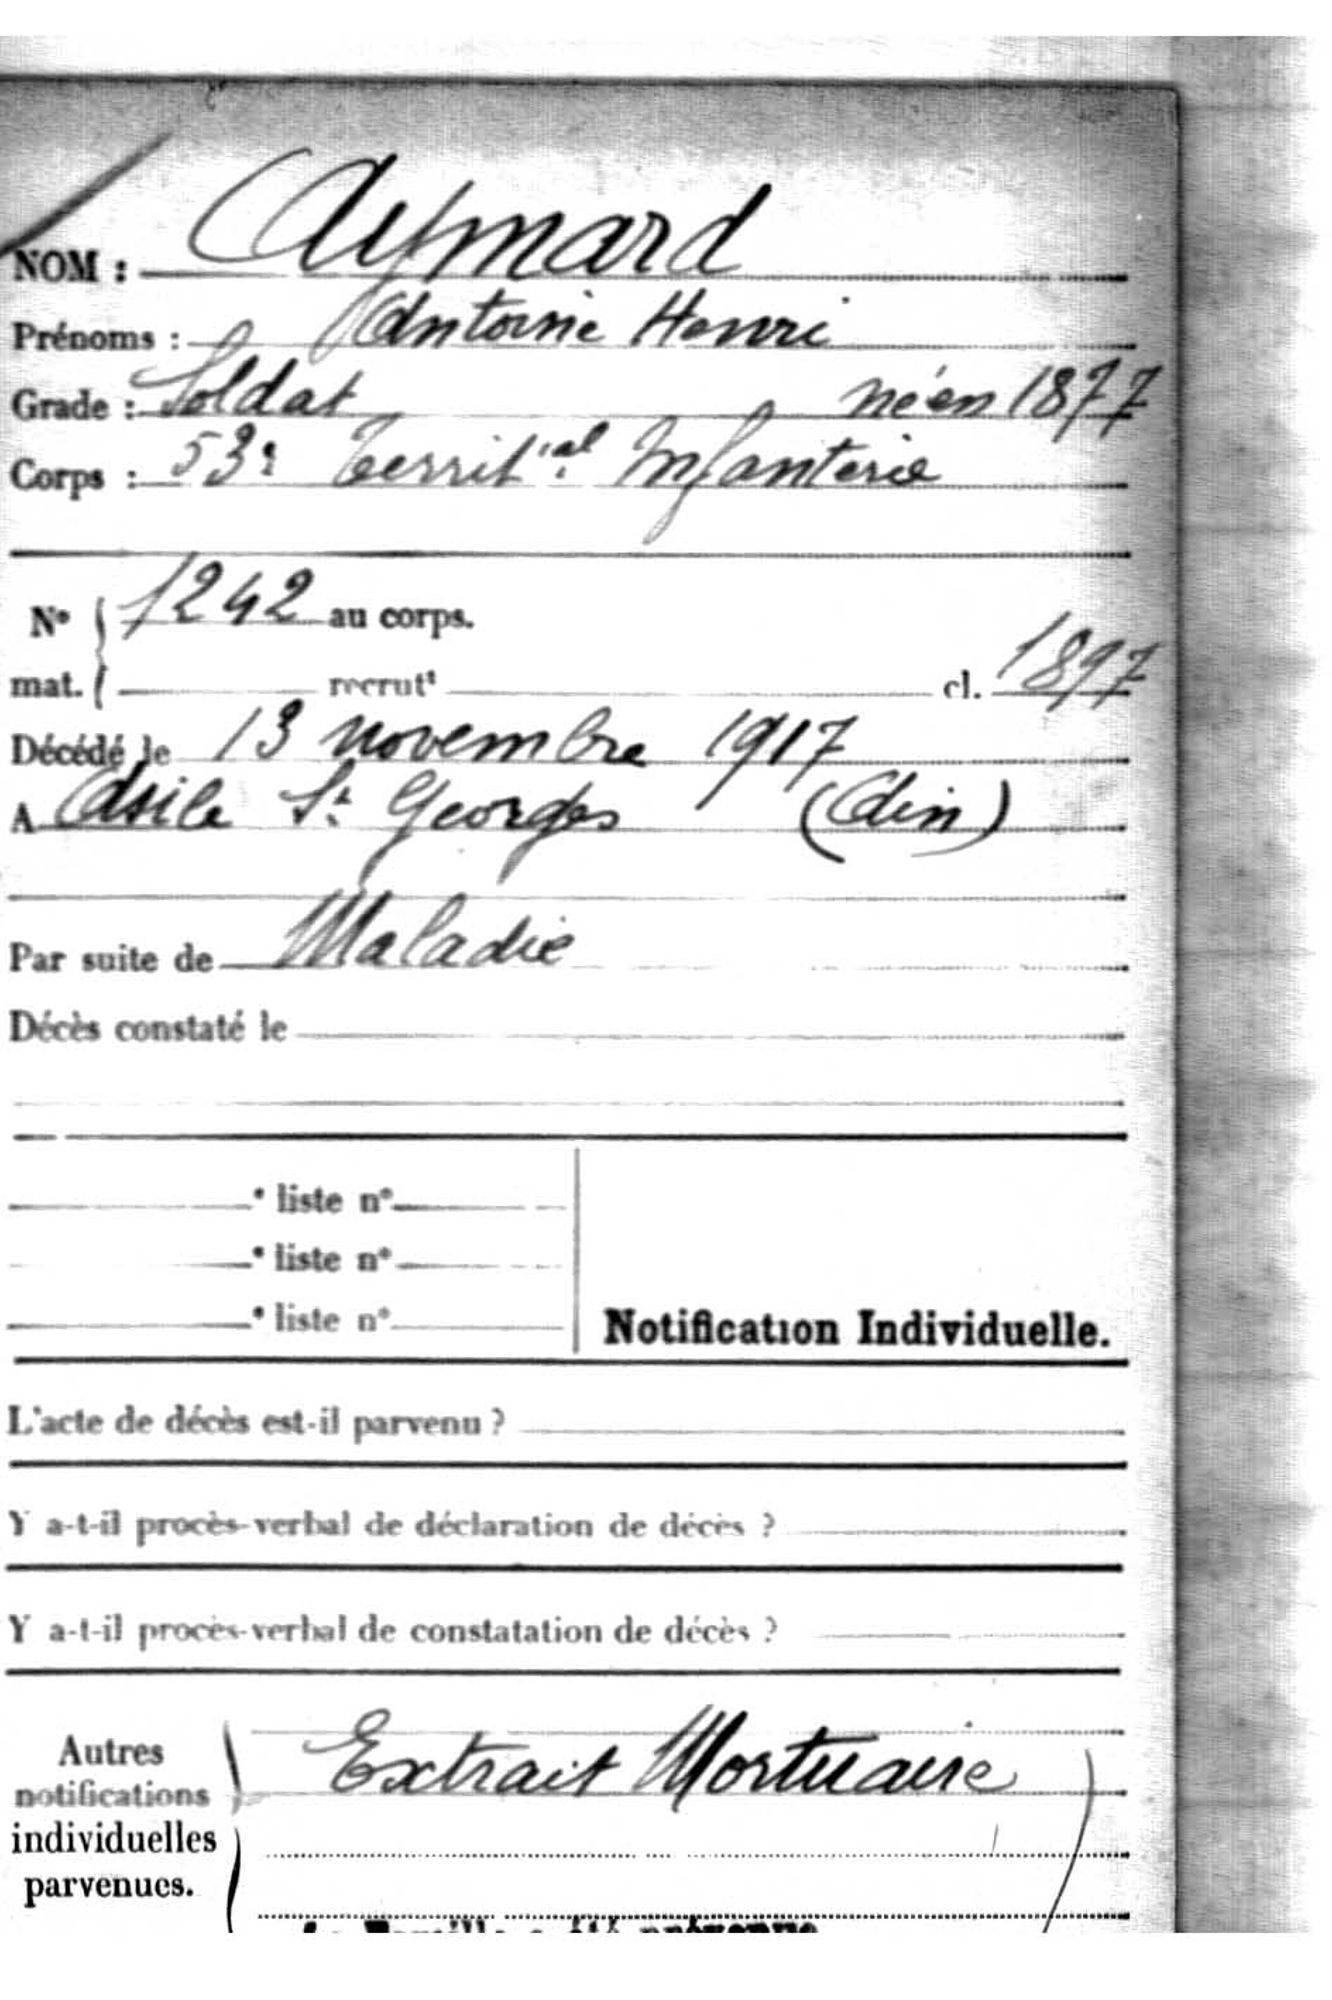 NOM : Aymard
Prénoms : Antoine Henri
Grade : Soldat né en 1877
Corps : 53e Territ'al Infanterie
No 1242 au corps.
mat. recrutt cl. 1897
Décédé le 13 novembre 1917
A Asile St Georges (Ain)
Par suite de Maladie
Décès constaté le
e liste no
e liste no
e liste no
Notification Individuelle.
L'acte de décès est-il parvenu ?
Y a-t-il procès-verbal de déclaration de décès ?
Y a-t-il procès-verbal de constatation de décès ?
Autres
notifications
individuelles
parvenues.
Extrait Mortuaire